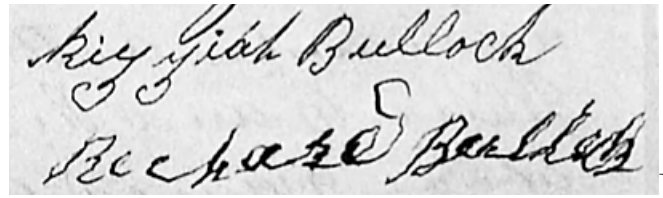 Kizziah Bullock
Richard Bullock